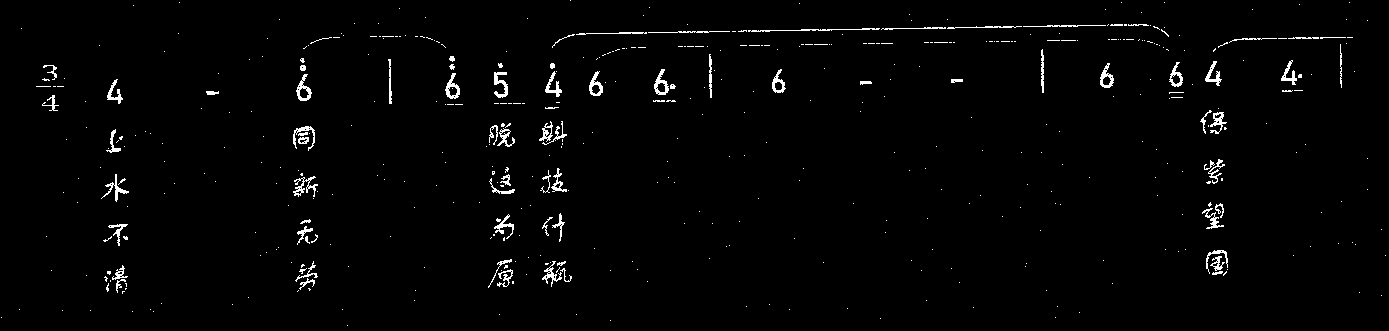 3/4 4 - 6 | 6 5 4 6 6. | 6 - - | 6 6 4 4. |
上 同 脱 斟 保
水 新 这 技 紫
不 无 为 什 望
清 劳 原 瓶 国